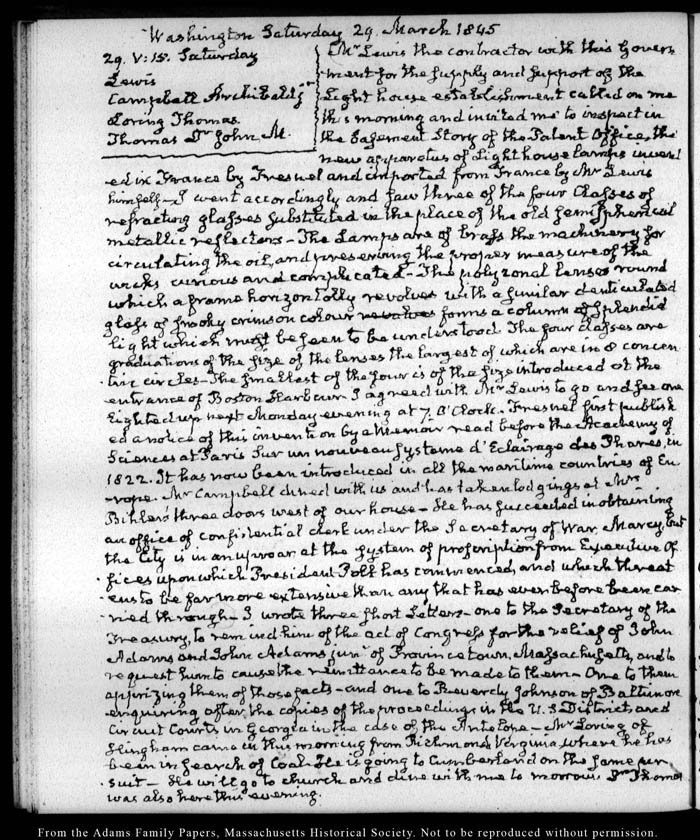 Washington Saturday 29. March 1845
29. V:15. Saturday
Lewis
Campbell Archibald
Loring Thomas
Thomas Dr John M.
Mr Lewis the contractor with this Govern
ment for the supply and support of the
Light house establishment called on me
this morning and invited me to inspect in
the basement Story of the Patent Office, the
new apparatus of Lighthouse lamps invent
ed in France by Fresnel and imported from France by Mr Lewis
himself. I went accordingly and saw three of the four Classes of
refracting glasses substituted in the place of the old semi spherical
metallic reflectors - The Lamps are of brass the machinery for
circulating the oil, and preserving the proper measure of the
wicks curious and complicated - The polyzonal lenses round
which a frame horizontally revolves with a similar denticulated
glass of smoky crimson colour revolves forms a column of splendid
light which must be seen to be understood. The four classes are
graduations of the size of the lenses the largest of which are in 8 concen
tric circles - The smallest of the four is of the size introduced at the
entrance of Boston Harbour. I agreed with Mr Lewis to go and see one
lighted up next Monday evening at 7. O'Clock. Fresnel first publish
ed a notice of this invention by a Memoir read before the Academy of
Sciences at Paris Sur un nouveau Systeme d'Eclairage des Phares, in
1822. It has now been introduced in all the maritime countries of Eu
rope. Mr Campbell dined with us and has taken lodgings at Mrs
Bihler's three doors west of our house - He has succeeded in obtaining
an office of confidential clerk under the Secretary of War, Marcy, but
the City is in an uproar at the system of proscription from Executive Of
fices upon which President Polk has commenced, and which threat
ens to be far more extensive than any that has ever before been car
ried through - I wrote three short Letters - one to the Secretary of the
Treasury, to remind him of the act of Congress for the relief of John
Adams and John Adams junr of Provincetown, Massachusetts, and to
request him to cause the remittance to be made to them - One to them
apprizing them of those facts - and one to Reverdy Johnson of Baltimore
enquiring after the copies of the proceedings in the U.S. District, and
Circuit Courts in Georgia in the case of the Antelope - Mr Loring of
Hingham came in this morning from Richmond, Virginia where he has
been in search of Coal. He is going to Cumberland on the same pur
suit - He will go to church and dine with me to morrow. Dr Thomas
was also here this evening.
From the Adams Family Papers, Massachusetts Historical Society. Not to be reproduced without permission.